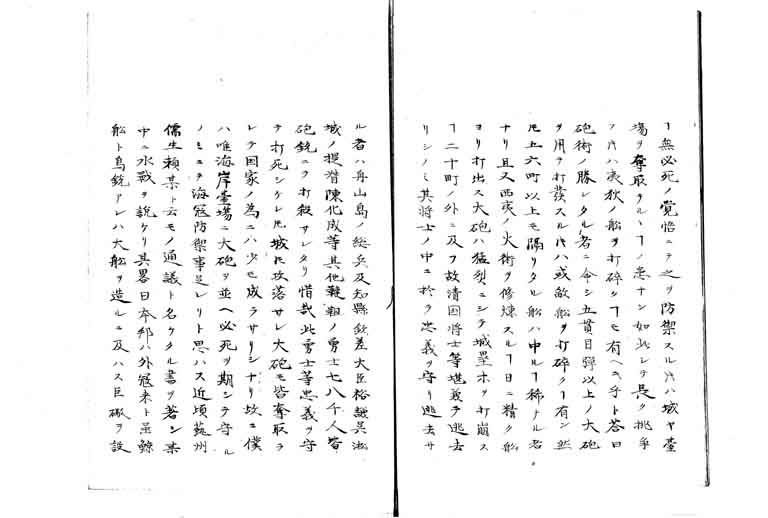 ヿ無必死ノ覚悟ニテ之ヲ防禦スル片ハ城ヤ臺
場ヲ奪取ラルヽヿノ患ナシ如此シテ長ク挑争
フ片ハ夷狄ノ船ヲ打碎クヿモ有ヘキ乎ト答曰
砲術ノ勝レタル者ニ令シ五貫目弾以上ノ大砲
ヲ用テ打發スル片ハ或敵船ヲ打碎クヿ有ン然
𪜈五六町以上モ隔リタル船ハ中ルヿ稀ナル者
ナリ且又西夷ノ火術ヲ修煉スルヿ日ニ精ク船
ヨリ打出ス大砲ハ猛烈ニシテ城塁ホヲ打崩ス
ヿ二十町ノ外ニ及フ故清国将士等堪義テ逃去
リシノミ其将士ノ中ニ於テ忠義ヲ守リ逃去サ
ル者ハ舟山島ノ総兵及知縣欽差大臣裕謙呉淞
城ノ提督陳化成等其他難艱ノ勇士七八千人皆
砲銃ニテ打殺サレタリ惜哉此勇士等忠義ヲ守
テ打死シケレ𪜈城ハ攻落サレ大砲モ皆奪取ラ
レテ国家ノ為ニハ少モ成ラサリシナリ故ニ僕
ハ唯海岸臺場ニ大砲ヲ並ヘ必死ヲ期シテ守ル
ノミニテ海冦防禦事足レリト思ハス近頃藝州
儒生頼某ト云モノ通議ト名ケタル書ヲ著シ某
中ニ水戦ヲ説ケリ其畧曰本邦ハ外冦来ト虽鯨
船ト鳥銃アレハ大船ヲ造ルニ及ハス巨礟ヲ設